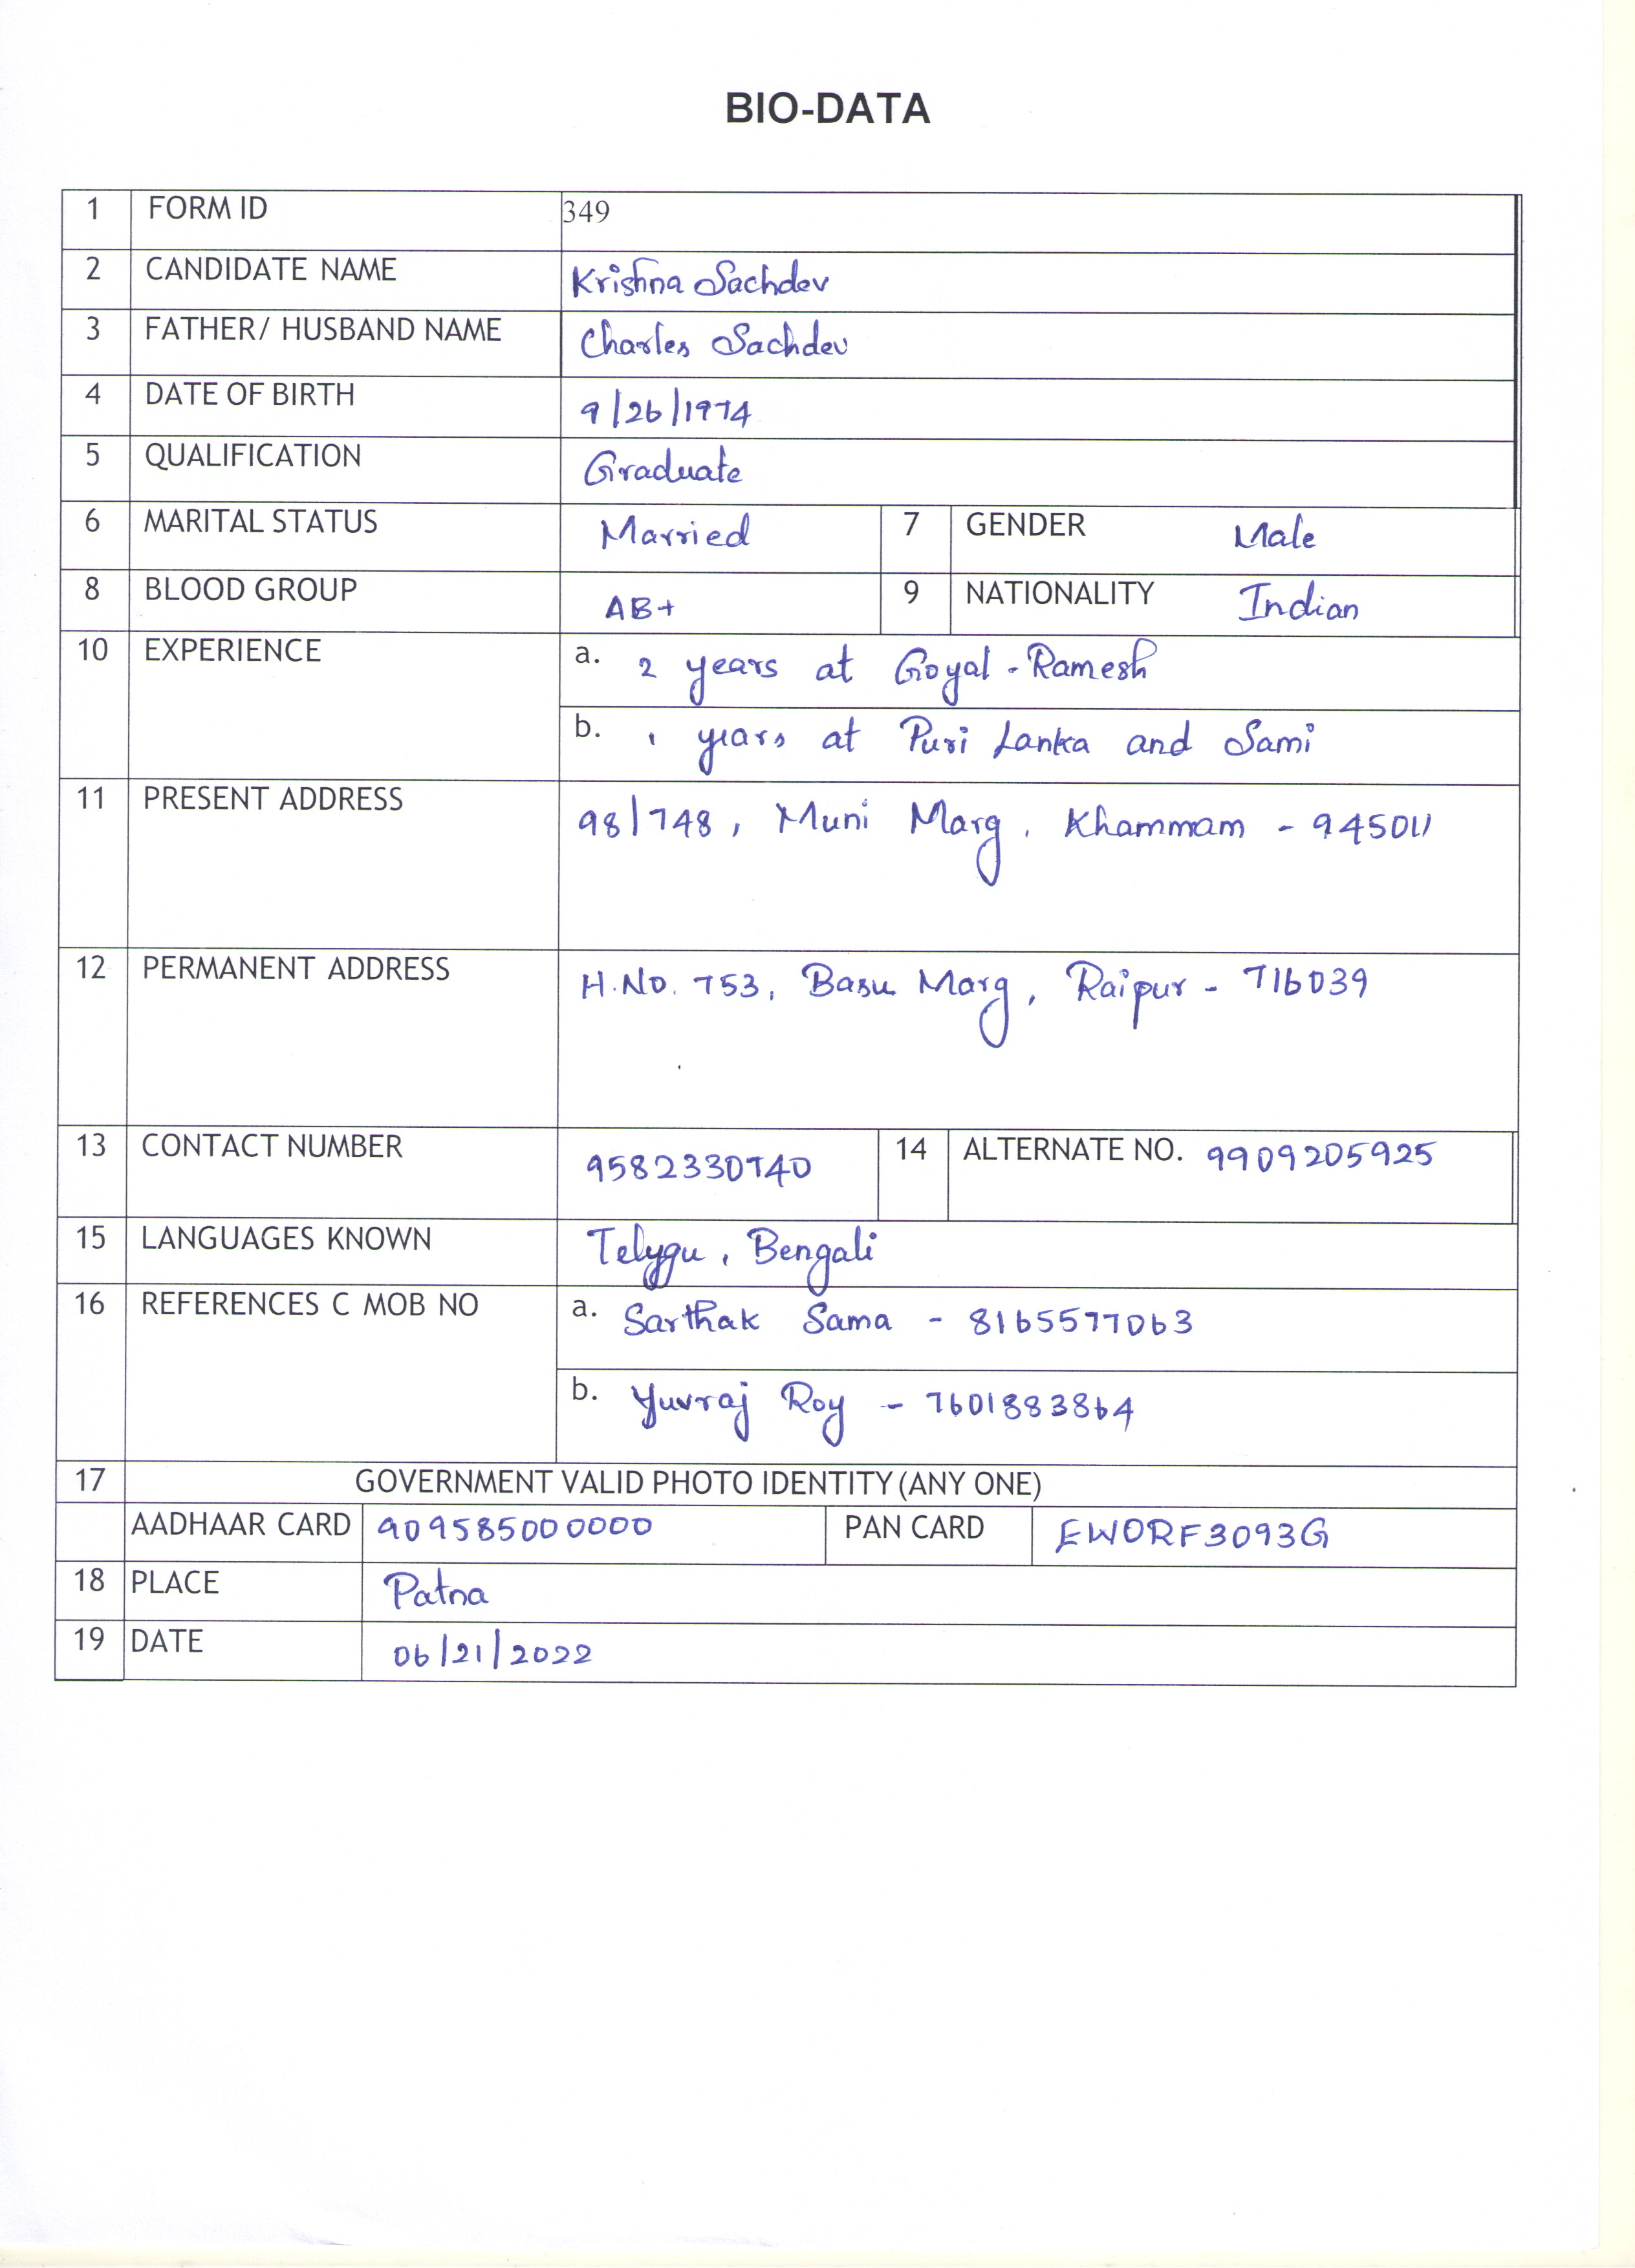 BIO-DATA
1 FORM ID 349
2 CANDIDATE NAME Krishna Sachdev
3 FATHER/ HUSBAND NAME Charles Sachdev
4 DATE OF BIRTH 9/26/1974
5 QUALIFICATION Graduate
6 MARITAL STATUS Married 7 GENDER Male
8 BLOOD GROUP AB+ 9 NATIONALITY Indian
10 EXPERIENCE a. 2 years at Goyal-Ramesh
b. 1 years at Puri Lanka and Sami
11 PRESENT ADDRESS 98/748, Muni Marg, Khammam - 945011
12 PERMANENT ADDRESS H.No. 753, Basu Marg, Raipur - 716039
13 CONTACT NUMBER 9582330740 14 ALTERNATE NO. 9909205925
15 LANGUAGES KNOWN Telygu, Bengali
16 REFERENCES C MOB NO a. Sarthak Sama - 8165577063
b. Yuvraj Roy - 7601883864
17 GOVERNMENT VALID PHOTO IDENTITY (ANY ONE)
AADHAAR CARD 909585000000 PAN CARD EWORF3093G
18 PLACE Patna
19 DATE 06/21/2022